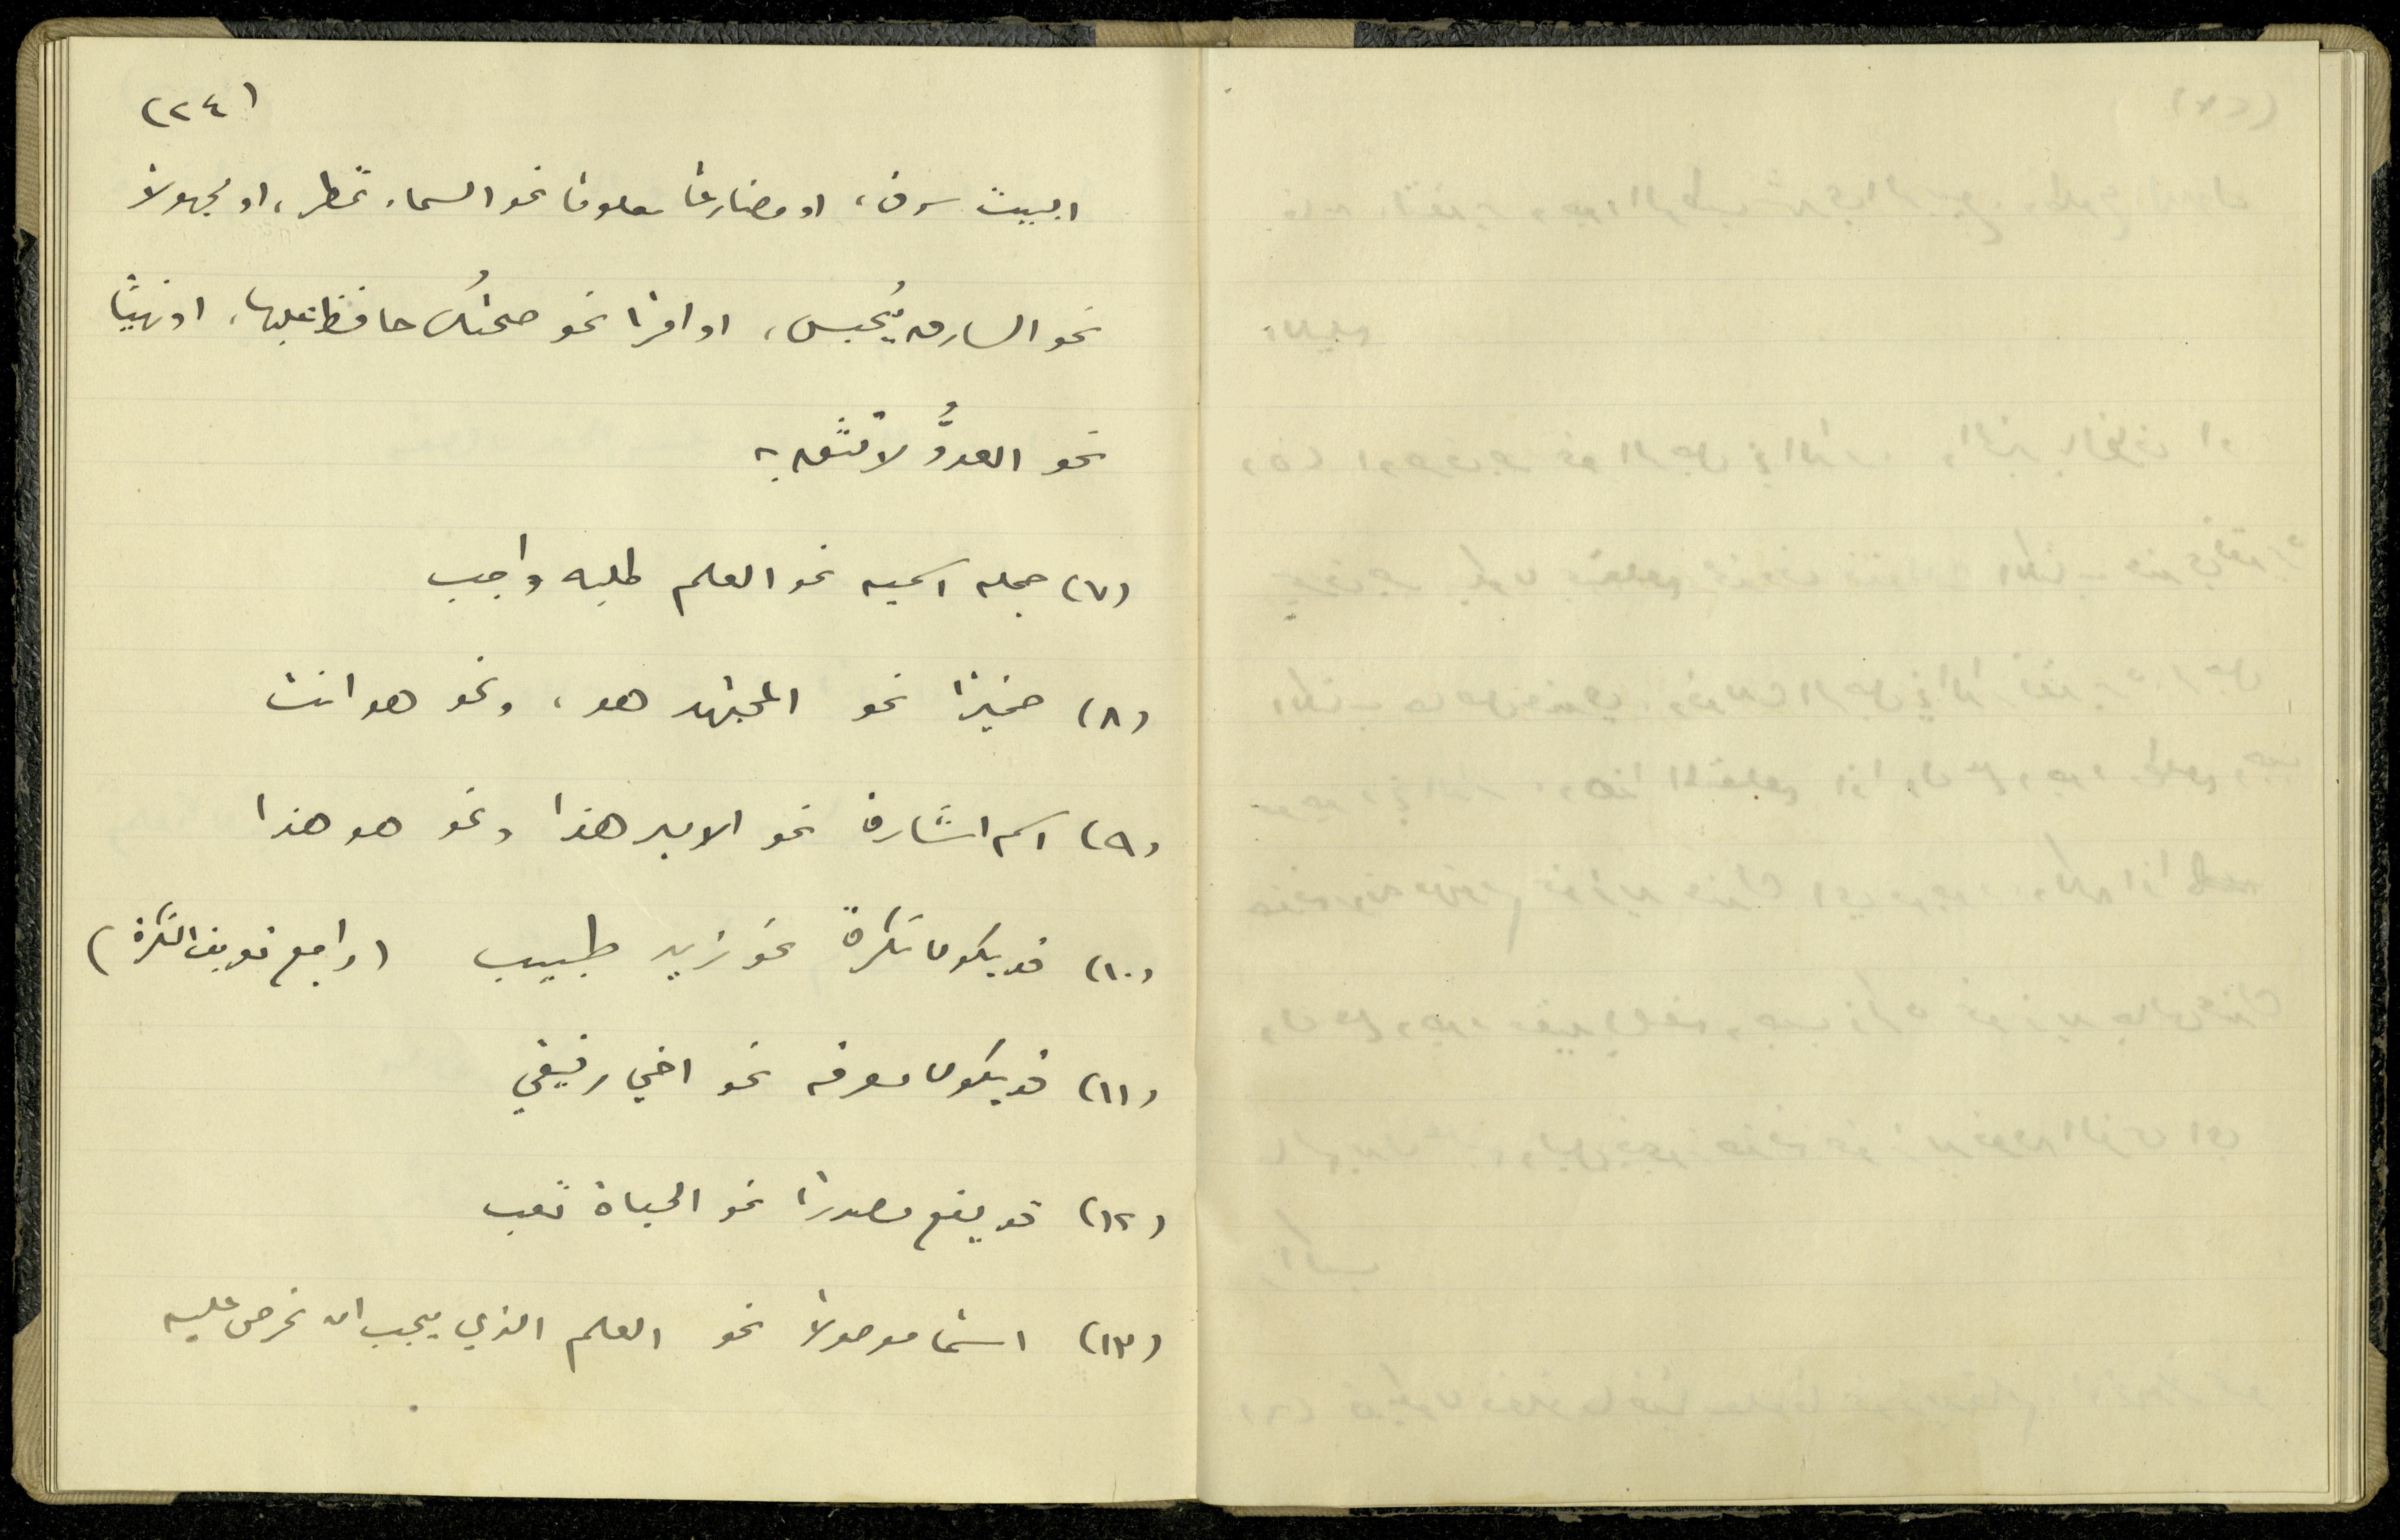 (٢٤)
البيت سرق، او مضارعًا معلومًا نحو السماء تمطر، او مجهولاً
نحو السارق يُحبس، او امرًا نحو صحتُك حافظ عليها، او نهيًا
نحو العدوُّ لا تثق به
(٧) جمله اسميه نحو العلم طلبه واجب
(٨) ضميرًا نحو المجتهد هو، ونحو هو انت
(٩) اسم اشارة نحو الامير هذا ونحو هو هذا
(١٠) قد يكون نكرةً نحو زيد طبيب (راجع تعريف النكرة)
(١١) قد يكون معرفه نحو اخي رفيقي
(١٢) قد يقع مصدرًا نحو الحياة تعب
(١٣) اسمًا موصولاً نحو العلم الذي يجب ان نحرص عليه